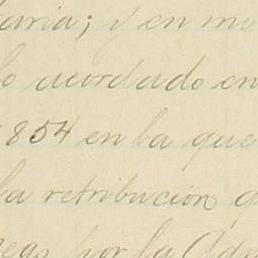 aria; y en mi
lo acordado en
1854 en la que
la retribucion
por la Adm